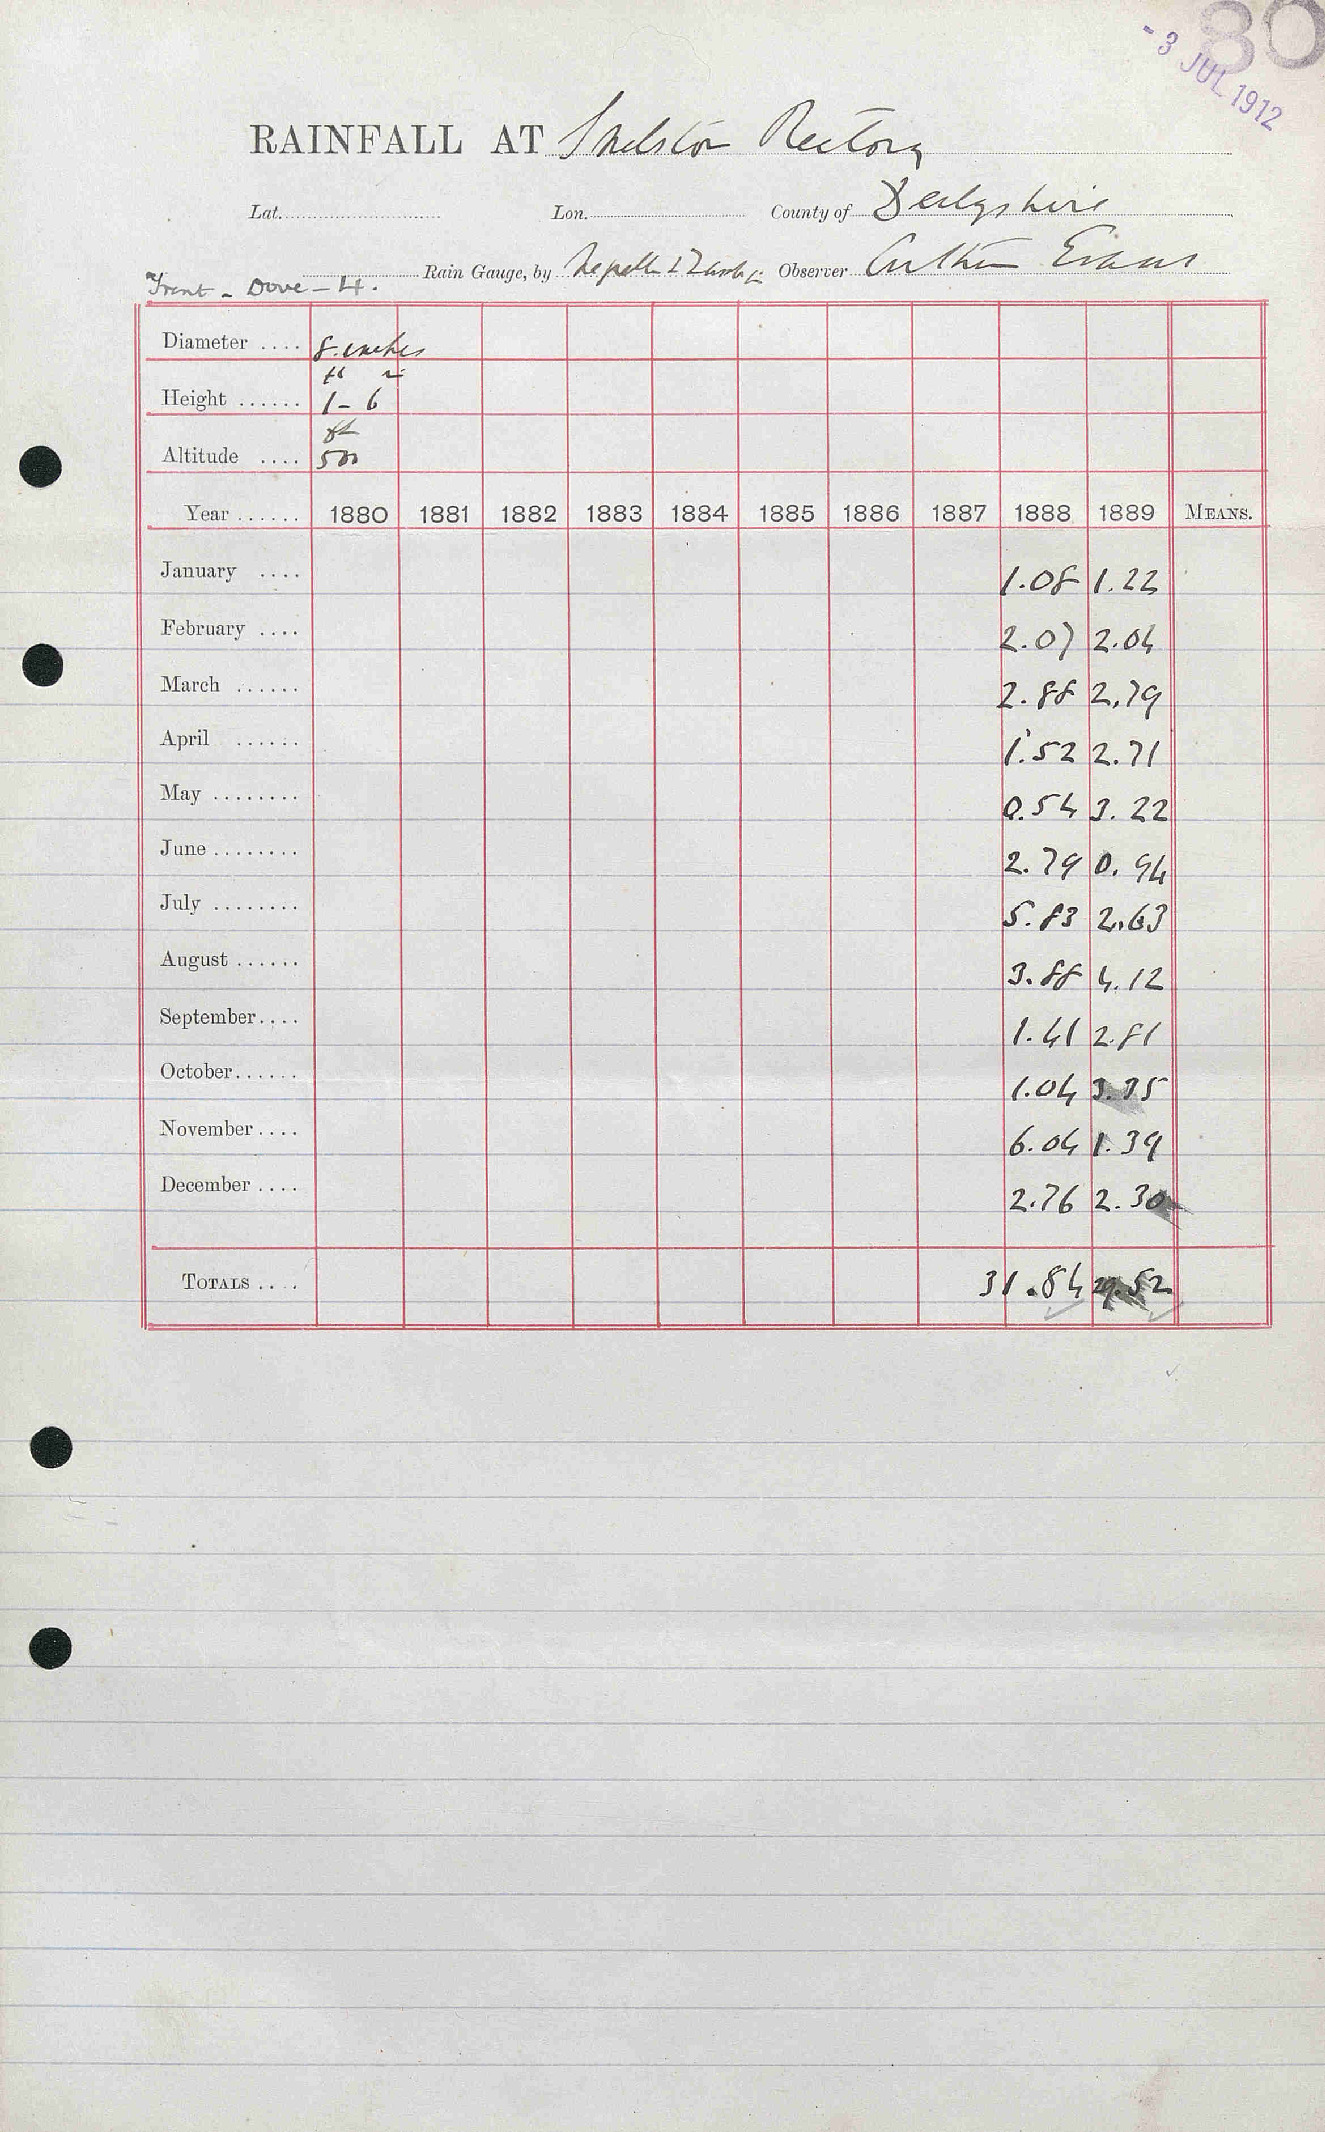 80
- 3 JUL 1912
RAINFALL AT Snelston Rectory
Lat. Lon. County of Derbyshire
Rain Gauge, by Negretti & Zambra Observer Arthur Evans
Trent - Dove - 4.
Diameter .... 8 inches
ft in
Height ...... 1 - 6
ft
Altitude .... 500
Year ...... 1880 1881 1882 1883 1884 1885 1886 1887 1888 1889 MEANS.
January .... 1.08 1.22
February .... 2.07 2.04
March ...... 2.88 2.79
April ...... 1.52 2.71
May ........ 0.54 3.22
June ........ 2.79 0.94
July ........ 5.83 2.63
August ...... 3.88 4.12
September.... 1.41 2.81
October...... 1.04 3.35
November .... 6.04 1.39
December .... 2.76 2.30
TOTALS .... 31.84 29.52